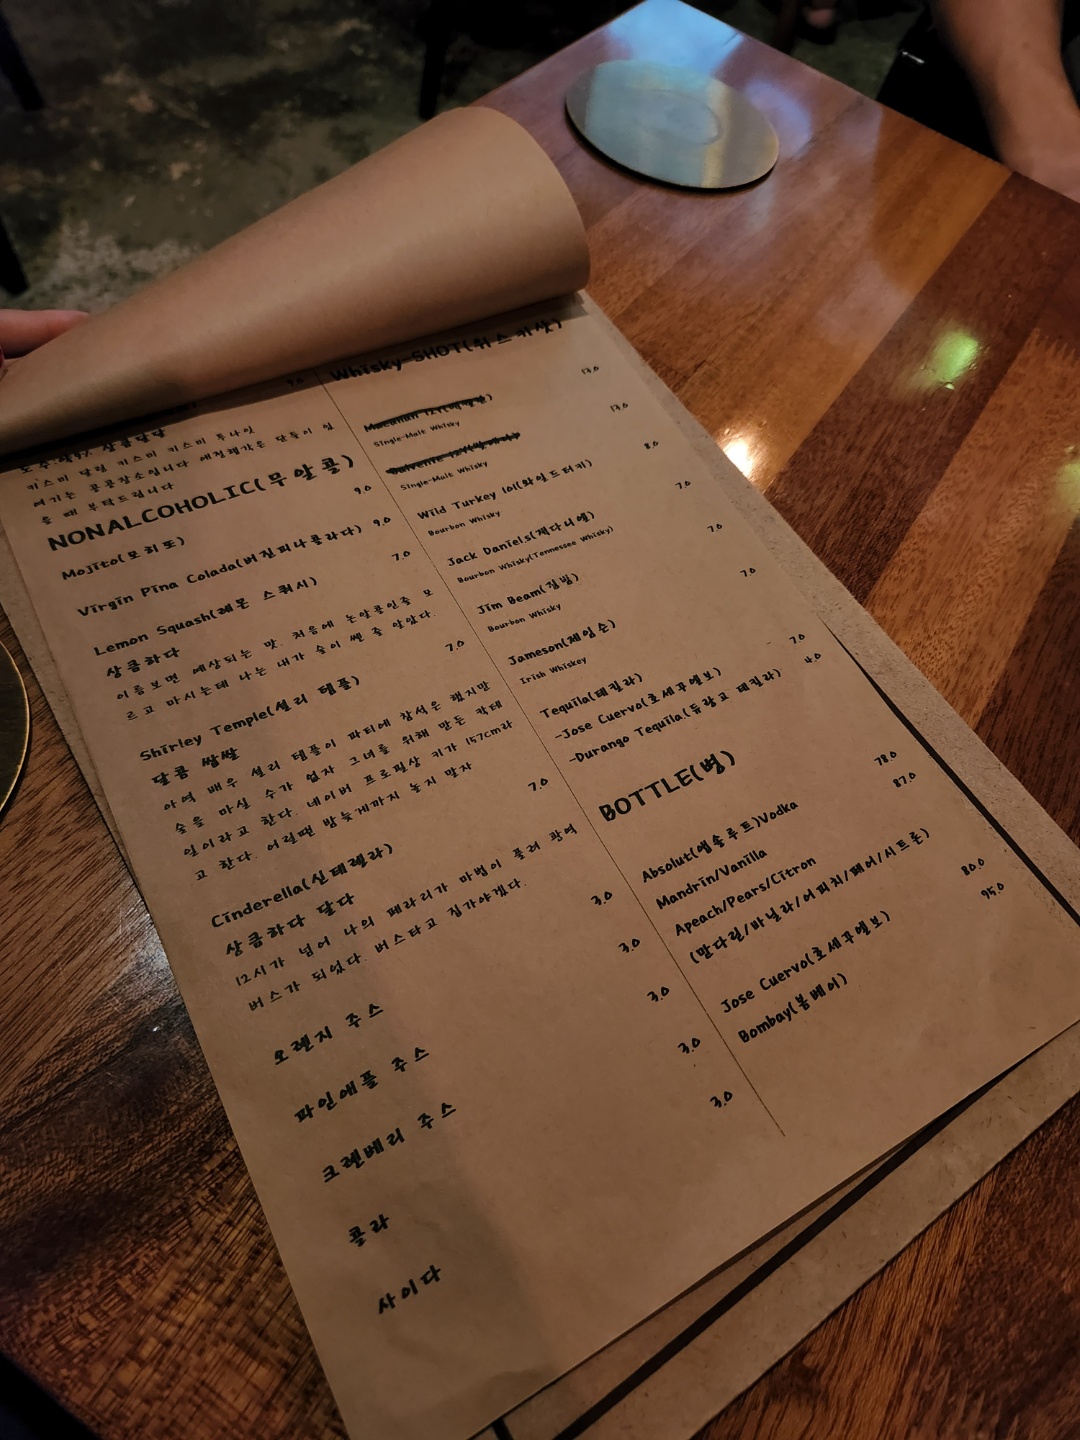 9.0
도수:약9% 상콤달달
키스미 달링 키스미 키스미 투나잇
여기는 공공장소입니다 애정행각은 단둘이 있
을 때 부탁드립니다
NONALCOHOLIC(무알콜)
Mojito(모히또) 9.0
Virgin Pina Colada(버진피나콜라다) 9.0
Lemon Squash(레몬 스쿼시) 7.0
상콤하다
이름보면 예상되는 맛. 처음에 논알콜인줄 모
르고 마시는데 나는 내가 술이 쎈 줄 알았다.
Shirley Temple(셜리 템플) 7.0
달콤 쌉쌀
아역 배우 셜리 템플이 파티에 참석은 했지만
술을 마실 수가 없자 그녀를 위해 만든 칵테
일이라고 한다. 네이버 프로필상 키가 157cm라
고 한다. 어릴땐 밤늦게까지 놀지 말자
Cinderella(신데렐라) 7.0
상콤하다 달다
12시가 넘어 나의 페라리가 마법이 풀려 광역
버스가 되었다. 버스타고 집가야겠다.
오렌지 주스 3.0
파인애플 주스 3.0
크렌베리 주스 3.0
콜라 3.0
사이다 3.0
Whisky SHOT(위스키샷)
Macallan 12Y 13.0
Single-Malt Whisky
Balvenie 12Y 13.0
Single-Malt Whisky
Wild Turkey 101(와일드터키) 8.0
Bourbon Whisky
Jack Daniels(잭다니엘) 7.0
Bourbon Whisky(Tennessee Whisky)
Jim Beam(짐빔) 7.0
Bourbon Whisky
Jameson(제임슨) 7.0
Irish Whiskey
Tequila(테킬라)
-Jose Cuervo(호세꾸엘보) 7.0
-Durango Tequila(듀랑고 테킬라) 4.0
BOTTLE(병)
Absolut(앱솔루트)Vodka 78.0
Mandrin/Vanilla 87.0
Apeach/Pears/Citron
(만다린/바닐라/어피치/페어/시트론)
Jose Cuervo(호세꾸엘보) 80.0
Bombay(봄베이) 95.0